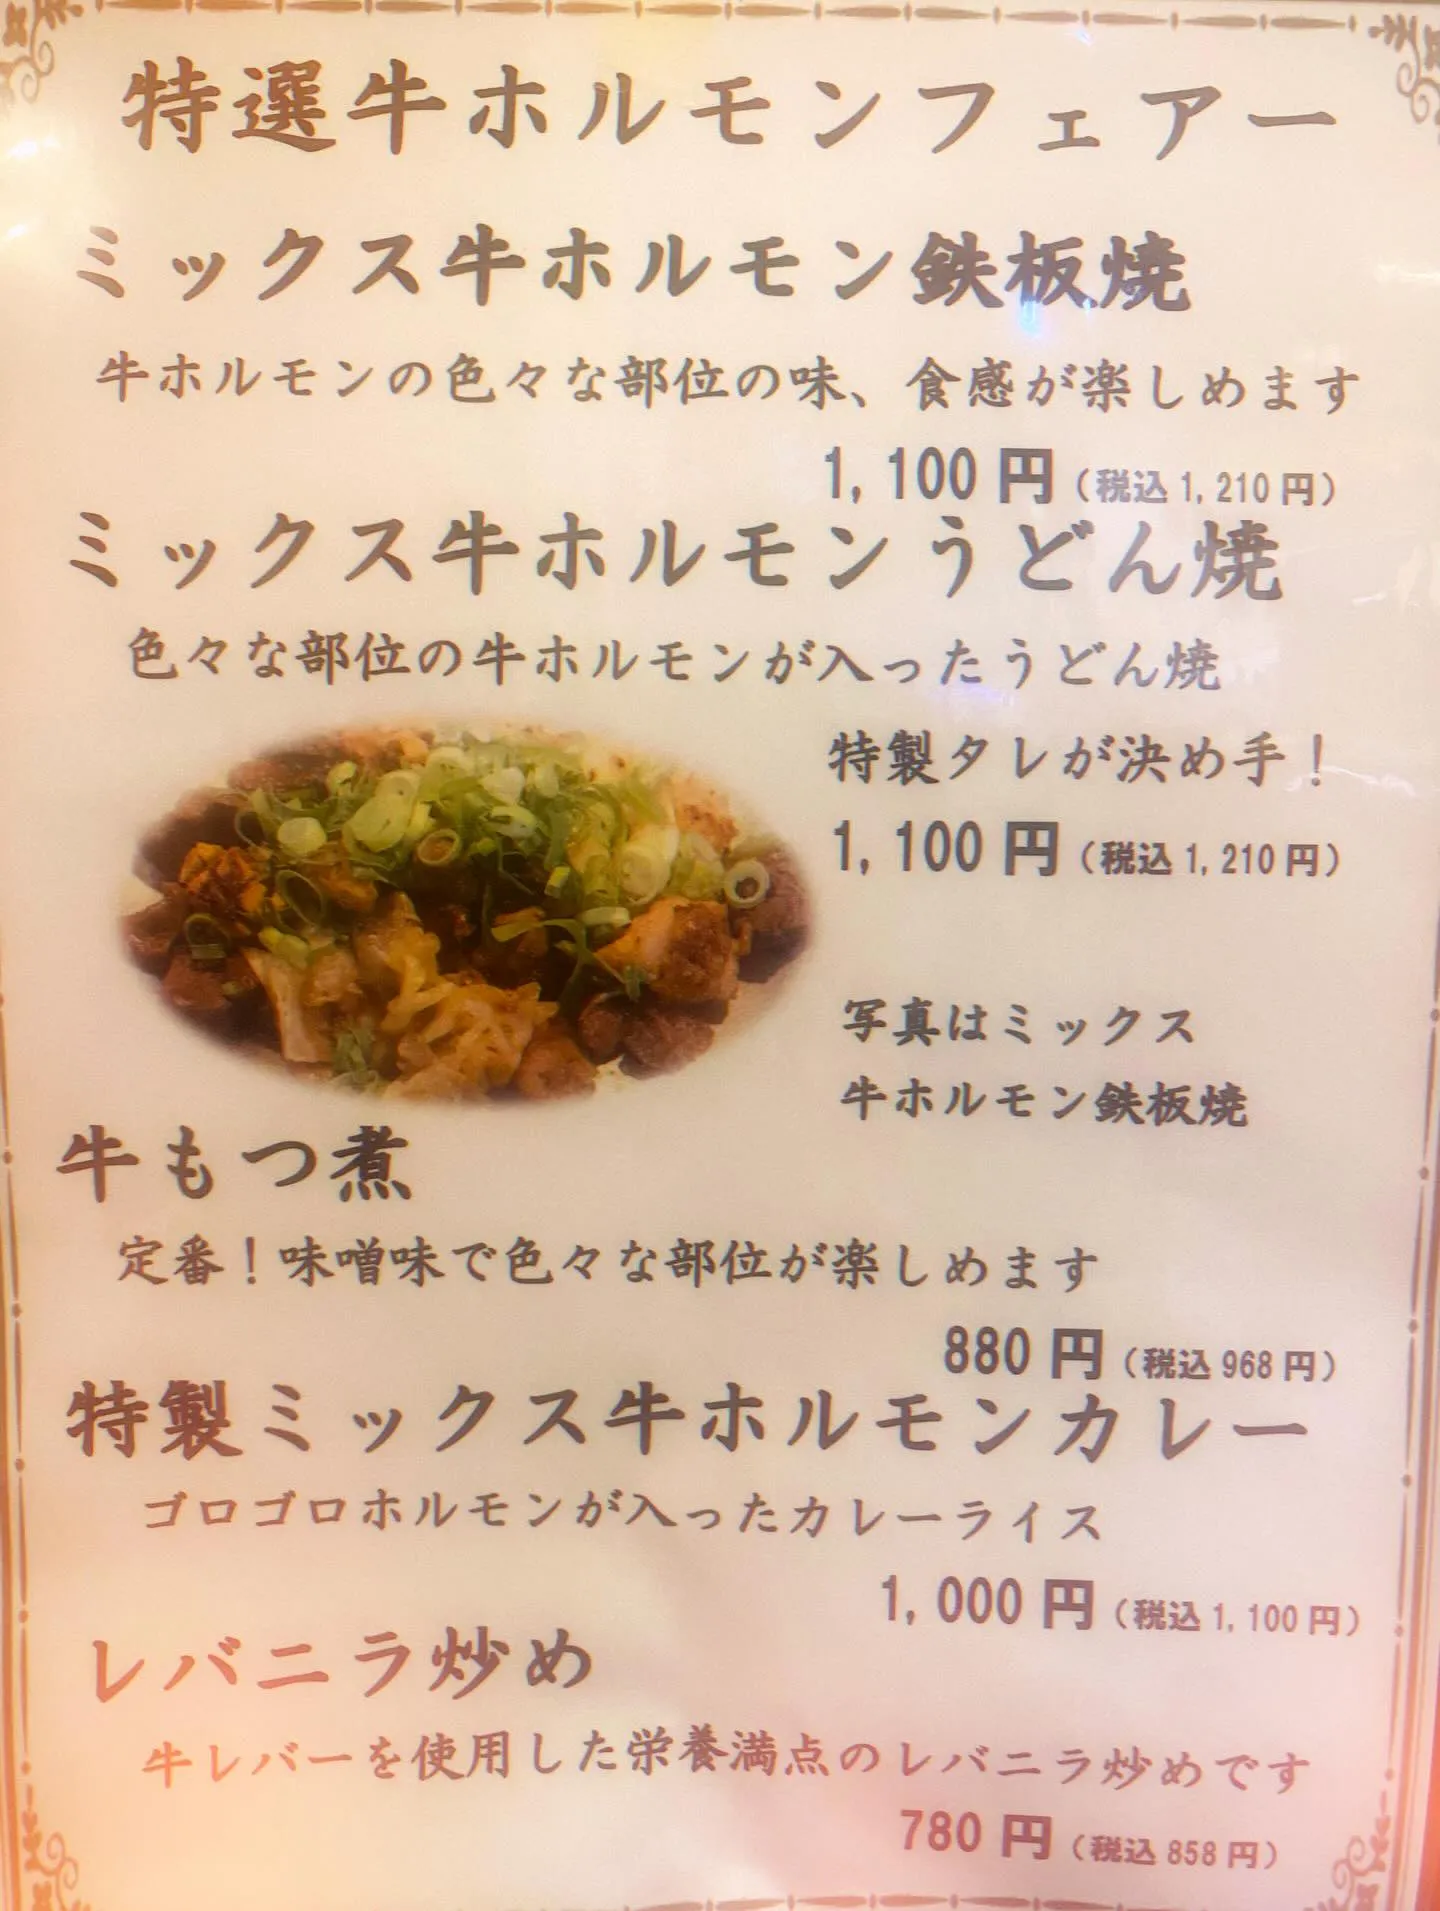 特選牛ホルモンフェアー
ミックス牛ホルモン鉄板焼
牛ホルモンの色々な部位の味、食感が楽しめます
1,100円（税込1,210円）
ミックス牛ホルモンうどん焼
色々な部位の牛ホルモンが入ったうどん焼
特製タレが決め手！
1,100円（税込1,210円）
写真はミックス
牛ホルモン鉄板焼
牛もつ煮
定番！味噌味で色々な部位が楽しめます
880円（税込968円）
特製ミックス牛ホルモンカレー
ゴロゴロホルモンが入ったカレーライス
1,000円（税込1,100円）
レバニラ炒め
牛レバーを使用した栄養満点のレバニラ炒めです
780円（税込858円）